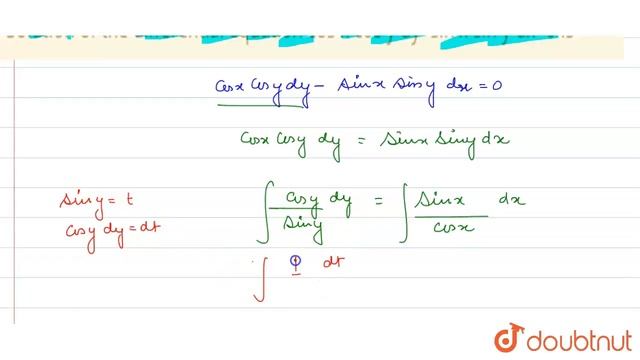 cosx cosy dy - sinx siny dx = 0
cosx cosy dy = sinx siny dx
siny = t
cosy dy = dt
∫ cosy/siny dy = ∫ sinx/cosx dx
∫ 1 dt
doubtnut